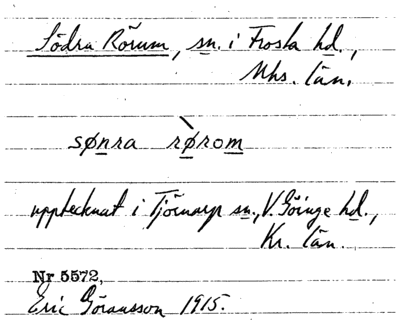 Södra Rörum, sn. i Frosta hd.,
Mhs. län.
sønra rø̀rom
upptecknat i Tjörnarp sn., V. Göinge hd.,
Kr. län.
Nr 5572,
Eric Göransson 1915.